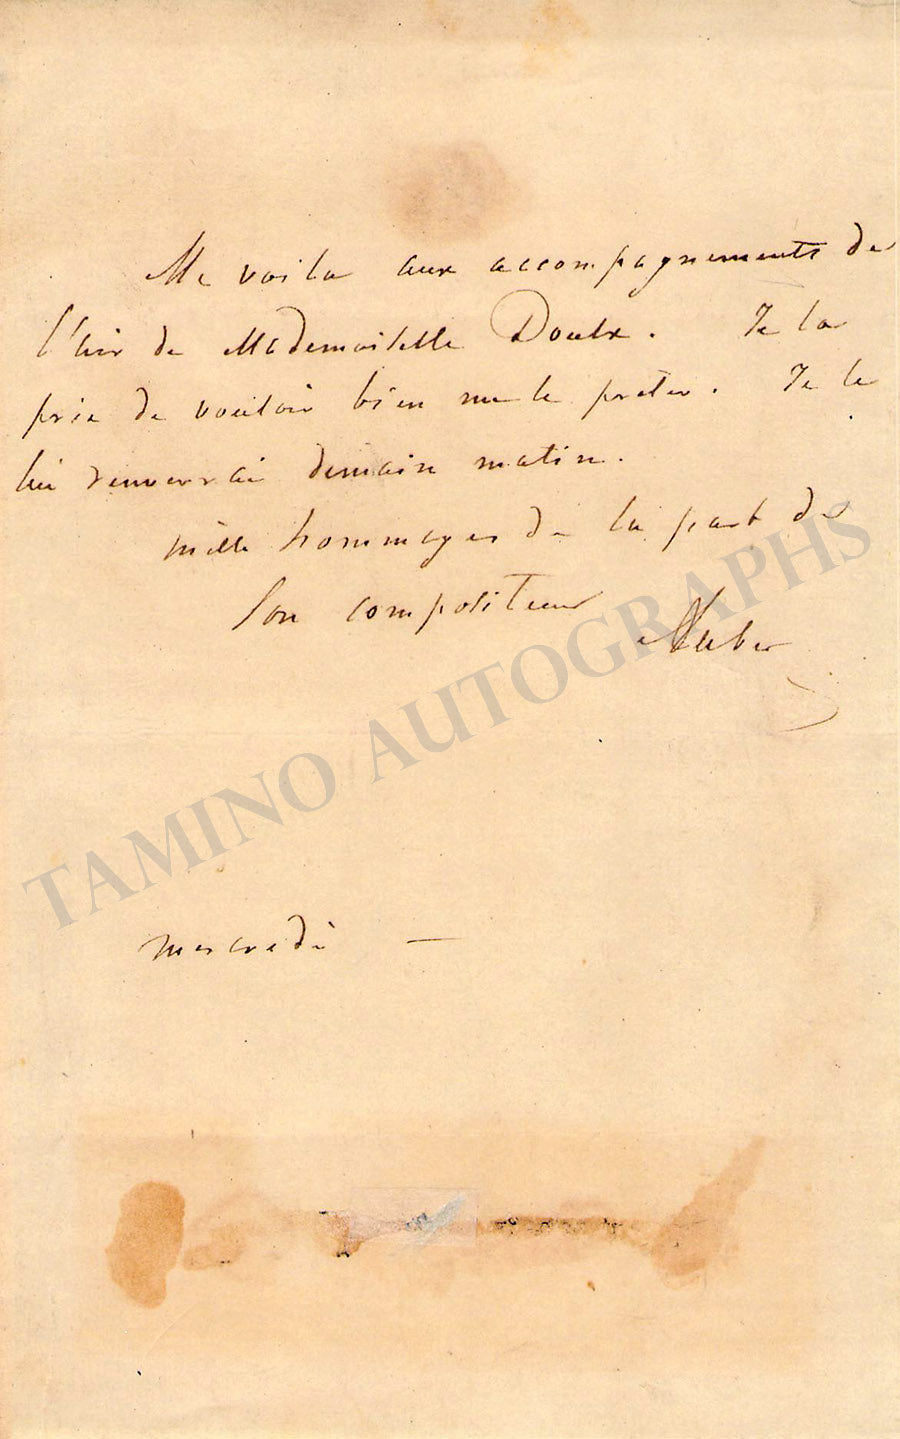 Me voila aux accompagnements de
l'air de Mademoiselle Doulx. Je la
prie de vouloir bien me le prêter. Je le
lui renverrai demain matin.
mille hommages de la part de
Son compositeur
Auber
mercredi —
TAMINO AUTOGRAPHS